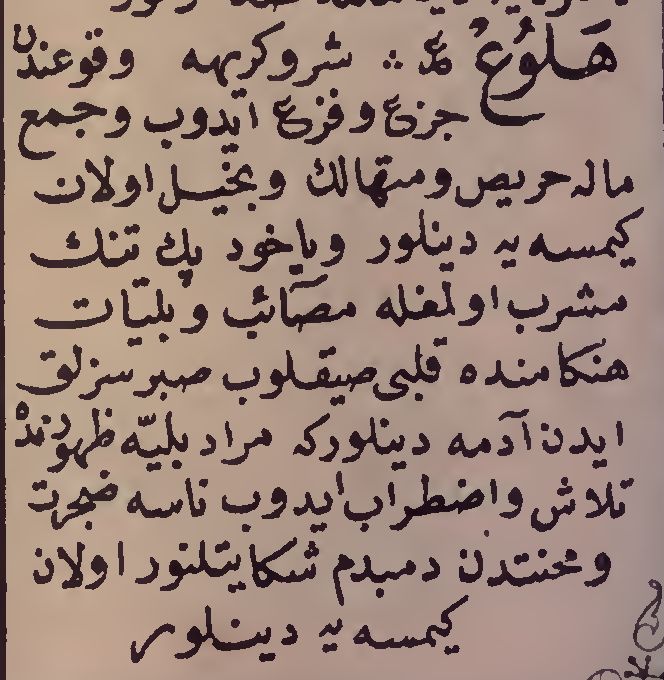 هَلُوعٌ ع ∴ شر و كريهه وقوعندن
جزع و فزع ايدوب و جمع
ماله حريص و متهالك و بخيل اولان
كيمسه يه دينلور و ياخود پك تنك
مشرب اولمغله مصآئب و بليّات
هنكامنده قلبى صيقلوب صبرسزلق
ايدن آدمه دينلوركه مراد بليّه ظهورنده
تلاش و اضطراب ايدوب ناسه ضجرت
و محنتدن دمبدم شكايتلنور اولان
كيمسه يه دينلور